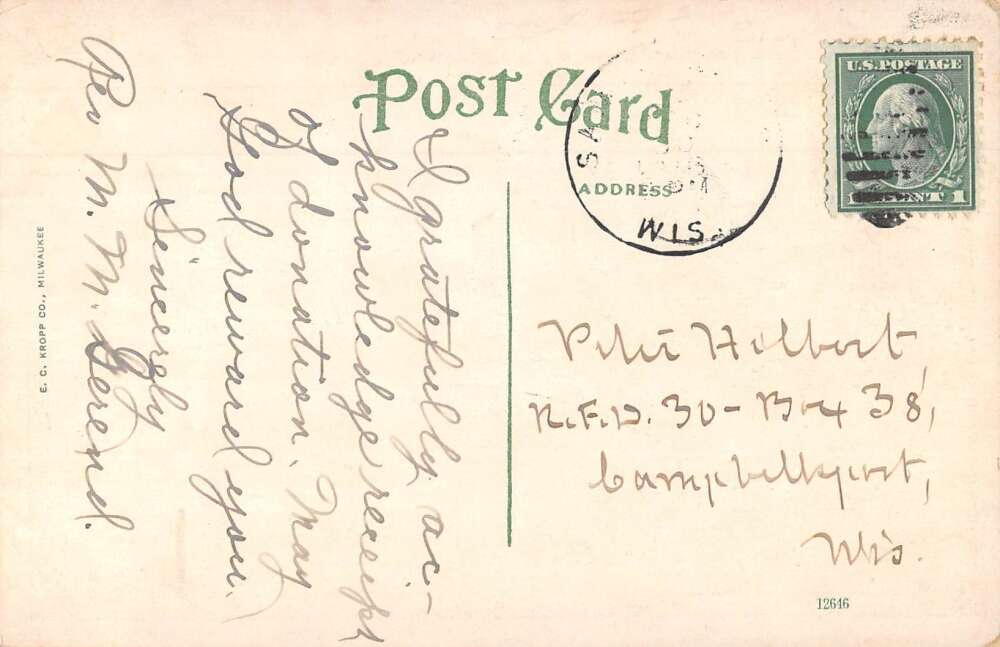 Post Card
ADDRESS
SA
WIS.
U.S. POSTAGE
1 CENT 1
I gratefully ac-
knowledge receipt
of donation, May
God reward you.
Sincerely
Rev M. M. Gerend.
Peter Holbert,
R.F.D. 30 - Box 38,
Campbellsport,
Wis.
E. C. KROPP CO., MILWAUKEE
12646